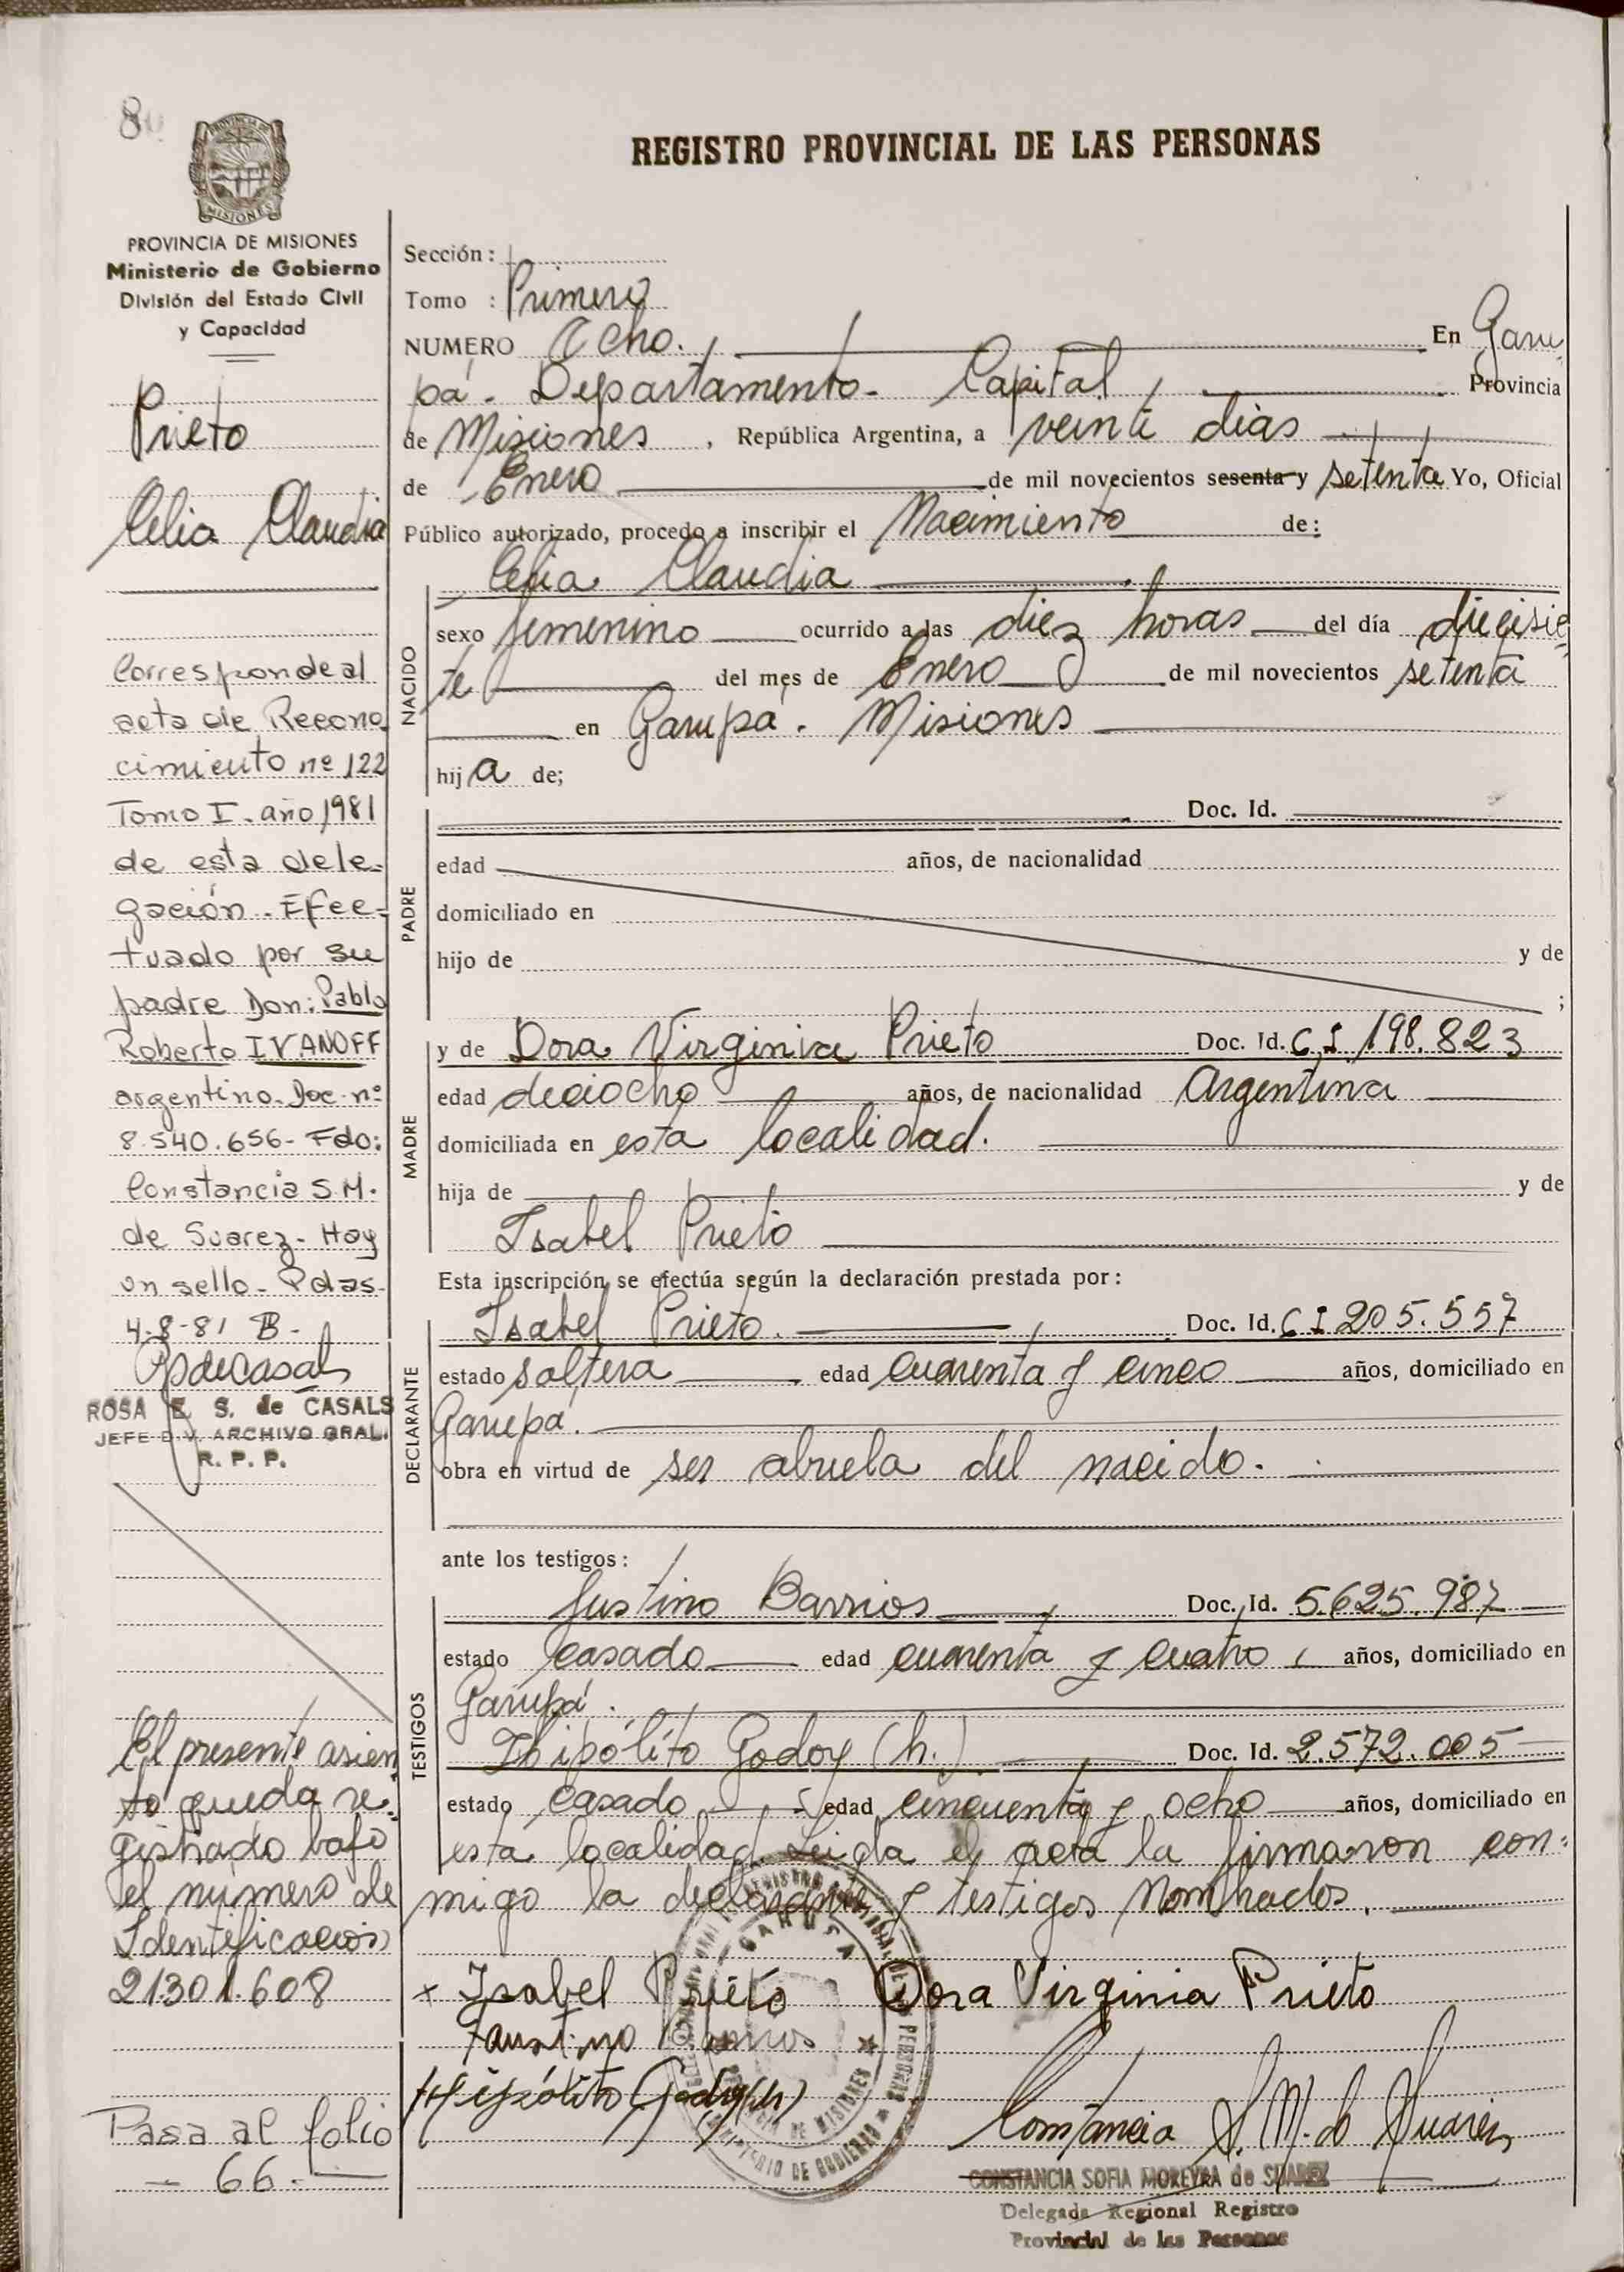 8
REGISTRO PROVINCIAL DE LAS PERSONAS
PROVINCIA DE
MISIONES
PROVINCIA DE MISIONES
Ministerio de Gobierno
División del Estado Civil
y Capacidad
Prieto
Celia Claudia
Corresponde al
acta de Recono-
cimiento nº 122
Tomo I. año 1981
de esta dele-
gación. Efec-
tuado por su
padre Don: Pablo
Roberto IVANOFF
argentino. Doc. nº
8.540.656- Fdo:
Constancia S.M.
de Suarez- Hay
un sello- Pdas-
4-8-81 B-
RSdeCasals
ROSA E. S. de CASALS
JEFE DIV. ARCHIVO GRAL.
R. P. P.
El presente asien
to queda re-
gistrado bajo
el número de
Identificación
21301.608
Pasa al folio
- 66.-
Sección:
Tomo : Primero
NUMERO Ocho. En Garu-
pá. Departamento- Capital, Provincia
de Misiones, República Argentina, a veinte dias
de Enero de mil novecientos sesenta y setenta Yo, Oficial
Público autorizado, procedo a inscribir el Nacimiento de:
Celia Claudia
NACIDO
sexo femenino ocurrido a las diez horas del día diecisie-
te del mes de Enero de mil novecientos setenta
en Garupá. Misiones
hija de;
PADRE
Doc. Id.
edad años, de nacionalidad
domiciliado en
hijo de y de
;
MADRE
y de Dora Virginia Prieto Doc. Id. C.I. 198.823
edad dieciocho años, de nacionalidad Argentina
domiciliada en esta localidad.
hija de y de
Isabel Prieto
Esta inscripción se efectúa según la declaración prestada por:
DECLARANTE
Isabel Prieto. Doc. Id. C I 205.557
estado soltera edad cuarenta y cinco años, domiciliado en
Garupá.
obra en virtud de ser abuela del nacido.
ante los testigos:
TESTIGOS
Justino Barrios Doc. Id. 5.625.987
estado casado edad cuarenta y cuatro, años, domiciliado en
Garupá.
Hipólito Godoy (h.) Doc. Id. 2.572.005
estado casado edad cincuenta y ocho años, domiciliado en
esta localidad. Leida el acta la firmaron con-
migo la declarante y testigos nombrados.
x Isabel Prieto Dora Virginia Prieto
Faustino Barrios
Hipólito Godoy (h)
Constancia S. M. de Suarez
GARUPA
PROVINCIA DE MISIONES
MINISTERIO DE GOBIERNO
CONSTANCIA SOFIA MOREYRA de SUAREZ
Delegada Regional Registro
Provincial de las Personas